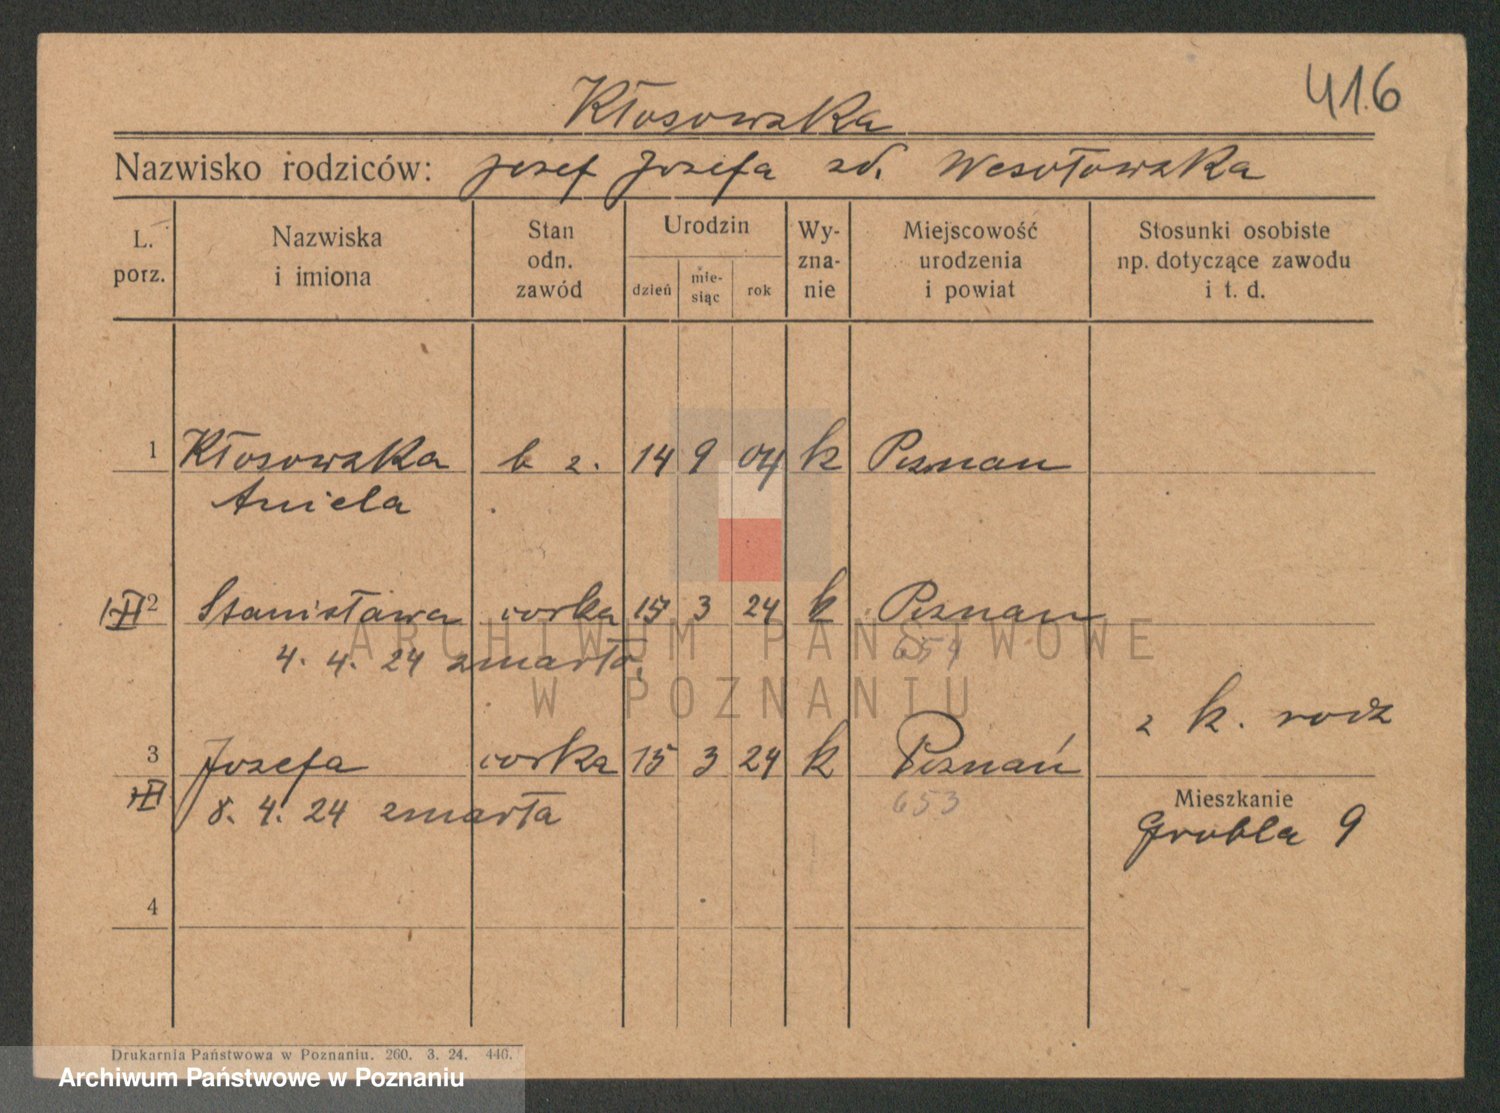 416
Kłosowska
Nazwisko rodziców: Jozef Jozefa zd. Wesołowska
L. porz.
Nazwiska i imiona
Stan odn. zawód
Urodzin
dzień
mie-siąc
rok
Wy-zna-nie
Miejscowość urodzenia i powiat
Stosunki osobiste np. dotyczące zawodu i t. d.
1 Kłosowska b z. 14 9 04 k Poznan
Aniela
2 Stanisława corka 15 3 24 k Poznan
4. 4. 24 zmarła 654
z k. rodz
3 Jozefa corka 15 3 24 k Poznań
8. 4. 24 zmarła 653
Mieszkanie
Grobla 9
4
ARCHIWUM PAŃSTWOWE
W POZNANIU
Drukarnia Państwowa w Poznaniu. 260. 3. 24. 446.
Archiwum Państwowe w Poznaniu